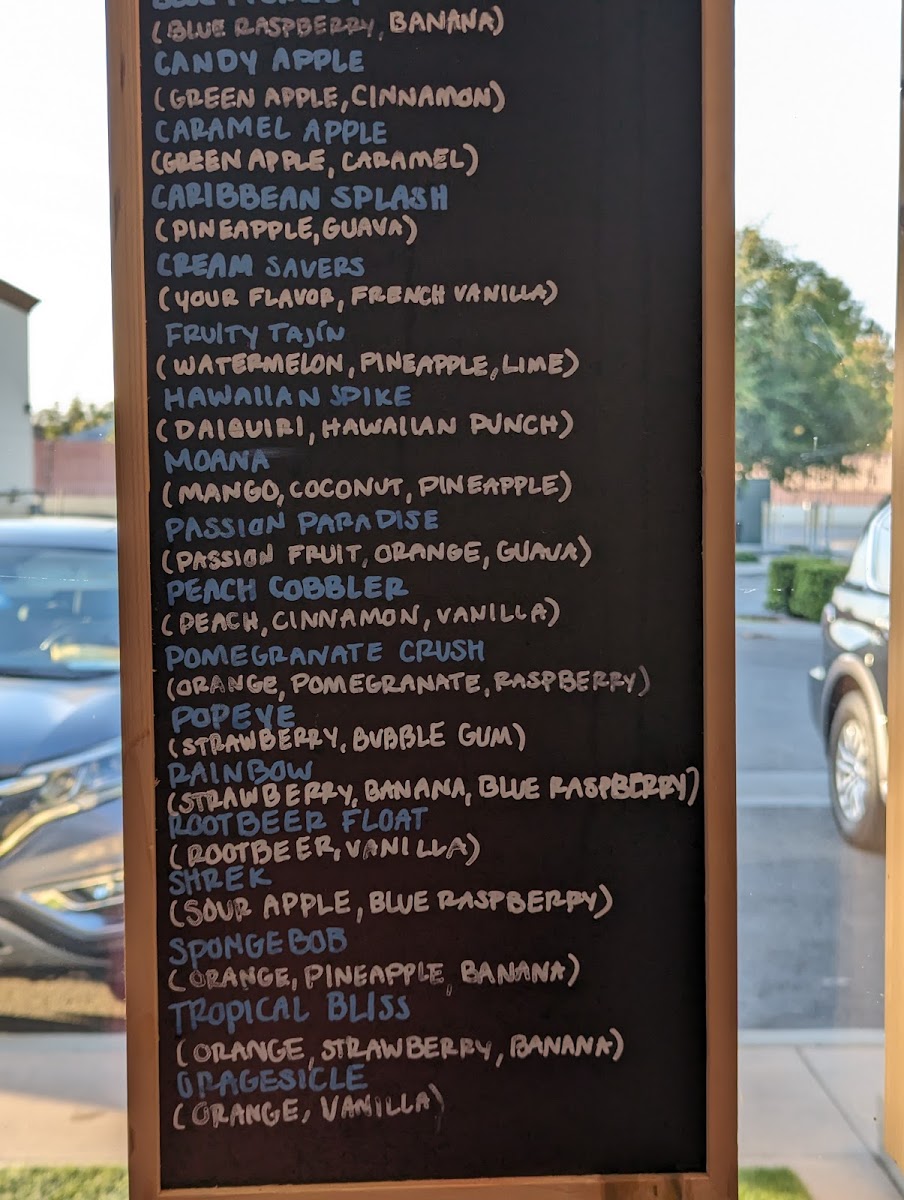 (BLUE RASPBERRY, BANANA)
CANDY APPLE
(GREEN APPLE, CINNAMON)
CARAMEL APPLE
(GREEN APPLE, CARAMEL)
CARIBBEAN SPLASH
(PINEAPPLE, GUAVA)
CREAM SAVERS
(YOUR FLAVOR, FRENCH VANILLA)
FRUITY TAJÍN
(WATERMELON, PINEAPPLE, LIME)
HAWAIIAN SPIKE
(DAIQUIRI, HAWAIIAN PUNCH)
MOANA
(MANGO, COCONUT, PINEAPPLE)
PASSION PARADISE
(PASSION FRUIT, ORANGE, GUAVA)
PEACH COBBLER
(PEACH, CINNAMON, VANILLA)
POMEGRANATE CRUSH
(ORANGE, POMEGRANATE, RASPBERRY)
POPEYE
(STRAWBERRY, BUBBLE GUM)
RAINBOW
(STRAWBERRY, BANANA, BLUE RASPBERRY)
ROOTBEER FLOAT
(ROOTBEER, VANILLA)
SHREK
(SOUR APPLE, BLUE RASPBERRY)
SPONGEBOB
(ORANGE, PINEAPPLE, BANANA)
TROPICAL BLISS
(ORANGE, STRAWBERRY, BANANA)
ORAGESICLE
(ORANGE, VANILLA)